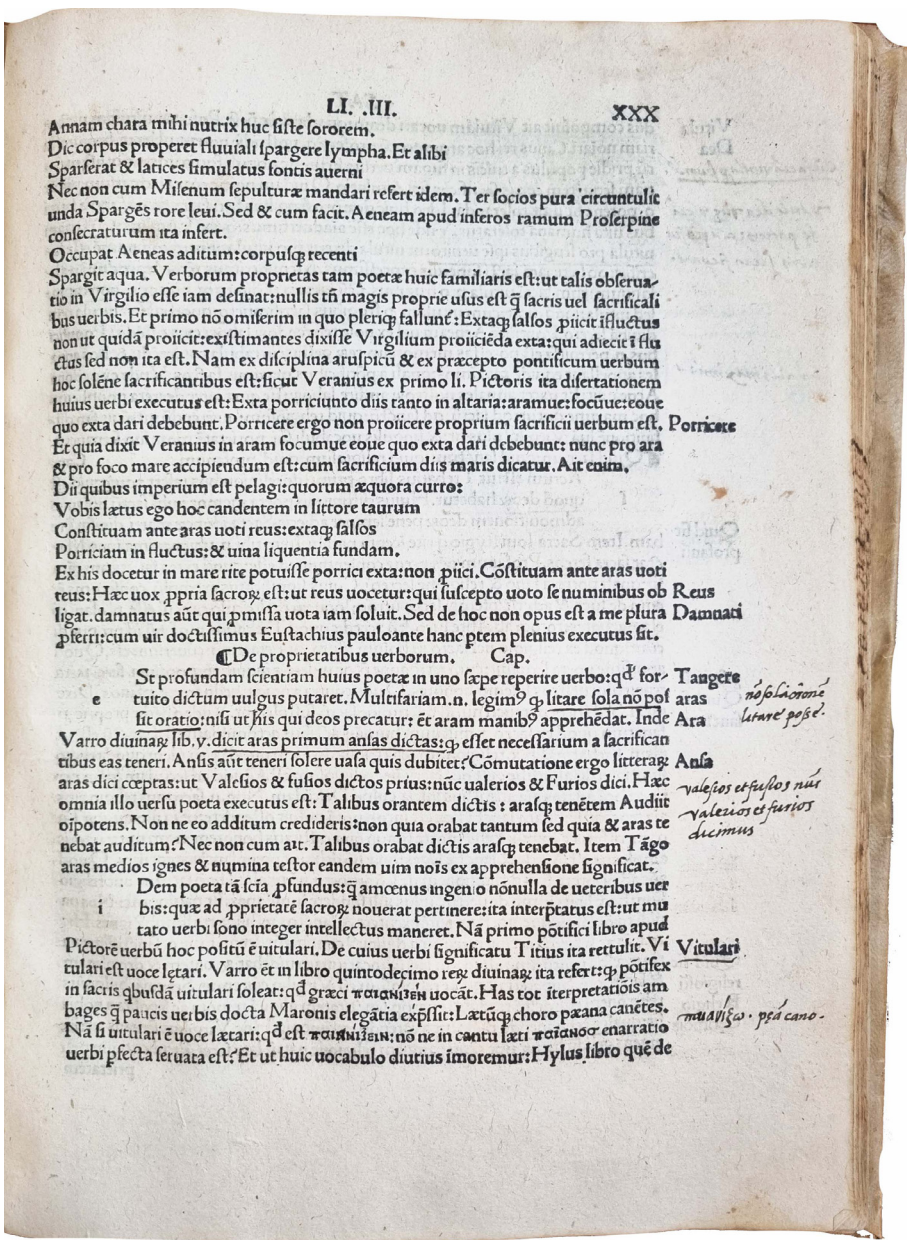 LI. .III. XXX
Annam chara mihi nutrix huc siste sororem.
Dic corpus properet fluuiali spargere lympha. Et alibi
Sparserat & latices simulatus fontis auerni
Nec non cum Misenum sepulturæ mandari refert idem. Ter socios pura circuntulit
unda Spargēs rore leui. Sed & cum facit. Aeneam apud inferos ramum Proserpine
consecraturum ita infert.
Occupat Aeneas aditum: corpusqꝫ recenti
Spargit aqua. Verborum proprietas tam poetæ huic familiaris est: ut talis obserua-
tio in Virgilio esse iam desinat: nullis tñ magis proprie usus est q̄ sacris uel sacrificali
bus uerbis. Et primo nō omiserim in quo pleriqꝫ fallunt᷑: Extaqꝫ salsos ꝓiicit īfluctus
non ut quidā proiicit: existimantes dixisse Virgilium proiiciēda exta: qui adiecit ī flu
ctus sed non ita est. Nam ex disciplina aruspicū & ex præcepto pontificum uerbum
hoc solēne sacrificantibus est: sicut Veranius ex primo li. Pictoris ita disertationem
huius uerbi executus est: Exta porriciunto diis tanto in altaria: aramue: focūue: eoue
quo exta dari debebunt. Porricere ergo non proiicere proprium sacrificii uerbum est. Porricere
Et quia dixit Veranius in aram focumue eoue quo exta dari debebunt: nunc pro ara
& pro foco mare accipiendum est: cum sacrificium diis maris dicatur. Ait enim.
Dii quibus imperium est pelagi: quorum æquora curro:
Vobis lætus ego hoc candentem in littore taurum
Constituam ante aras uoti reus: extaqꝫ salsos
Porriciam in fluctus: & uina liquentia fundam.
Ex his docetur in mare rite potuisse porrici exta: non ꝓiici. Cōstituam ante aras uoti
reus: Hæc uox ꝓpria sacroꝝ est: ut reus uocetur: qui suscepto uoto se numinibus ob Reus
ligat. damnatus aūt qui ꝓmissa uota iam soluit. Sed de hoc non opus est a me plura Damnati
ꝓferri: cum uir doctissimus Eustachius pauloante hanc ꝑtem plenius executus sit.
¶De proprietatibus uerborum. Cap.
St profundam scientiam huius poetæ in uno sæpe reperire uerbo: qd̕ for- Tangere
e tuito dictum uulgus putaret. Multifariam .n. legimꝰ ꝙ litare sola nō pos aras
sit oratio: nisi ut his qui deos precatur: ēt aram manibꝰ apprehēdat. Inde Ara
nō sola orōne
litare posse.
Varro diuinaꝝ lib. v. dicit aras primum ansas dictas: ꝙ esset necessarium a sacrifican
tibus eas teneri. Ansis aūt teneri solere uasa quis dubitet? Cōmutatione ergo litteraꝝ Ansa
aras dici cœptas: ut Valesios & fusios dictos prius: nūc ualerios & Furios dici. Hæc
valesios et fusios nūc
valerios et furios
dicimus
omnia illo uersu poeta executus est: Talibus orantem dictis: arasqꝫ tenētem Audiit
oīpotens. Non ne eo additum credideris: non quia orabat tantum sed quia & aras te
nebat auditum? Nec non cum ait. Talibus orabat dictis arasqꝫ tenebat. Item Tāgo
aras medios ignes & numina testor eandem uim noīs ex apprehensione significat.
Dem poeta tā scīa ꝓfundus: q̄ amœnus ingenio nōnulla de ueteribus uer
i bis: quæ ad ꝓprietatē sacroꝝ nouerat pertinere: ita interp̄tatus est: ut mu
tato uerbi sono integer intellectus maneret. Nā primo pōtifici libro apud
Pictorē uerbū hoc positū ē uitulari. De cuius uerbi significatu Titius ita rettulit. Vi Vitulari
tulari est uoce lętari. Varro ēt in libro quintodecimo reꝝ diuinaꝝ ita refert: ꝙ pōtifex
in sacris qbusdā uitulari soleat: qd̕ græci παιανίζειν uocāt. Has tot īterpretatiōis am
bages q̄ paucis uerbis docta Maronis elegātia exp̄ssit: Lætūqꝫ choro pæana canētes.
Nā si uitulari ē uoce lætari: qd̕ est παιανίζειν: nō ne in cantu læti παιανοσ enarratio
uerbi ꝑfecta seruata est? Et ut huic uocabulo diutius īmoremur: Hylus libro quē de